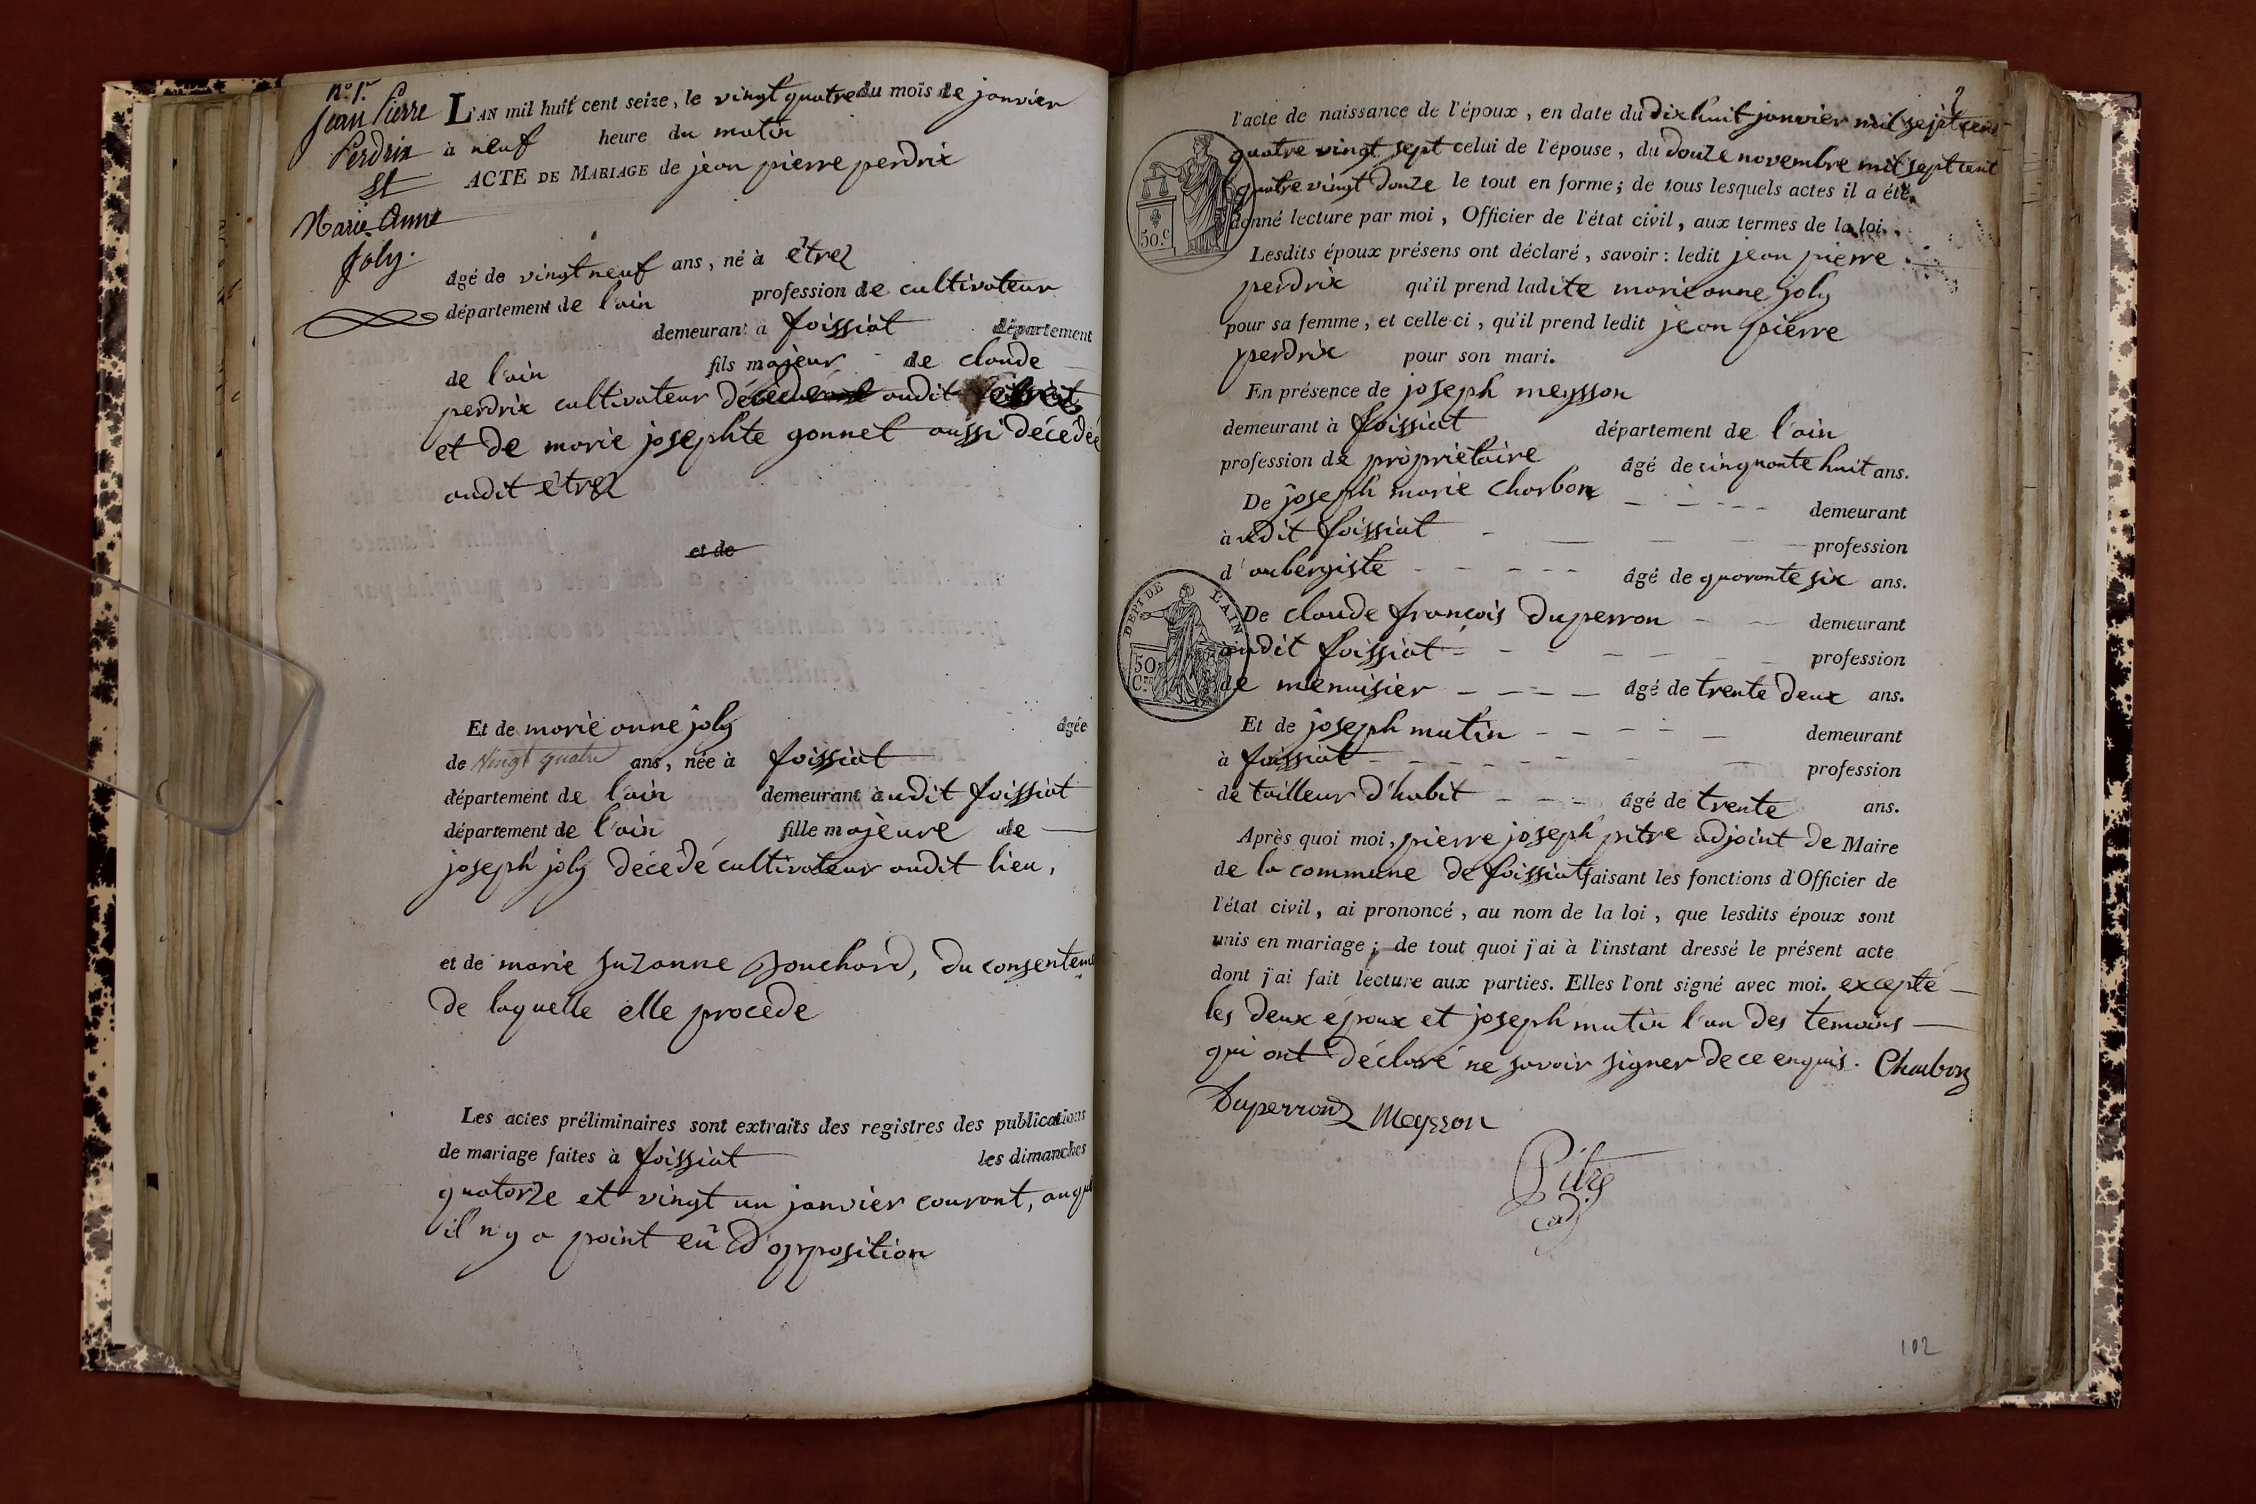 n.º 1.er
Jean Pierre
Perdrix
Et
Marie Anne
Joly.
L'AN mil huit cent seize, le vingt quatre du mois de janvier
à neuf heure du matin
ACTE DE MARIAGE de jean pierre perdrix
âgé de vingt neuf ans, né à étrez
département de l'ain profession de cultivateur
demeurant à foissiat département
de l'ain fils majeur de claude
perdrix cultivateur décédé audit
et de marie josephte gonnet aussi décédée
audit étrez
et de
Et de marie anne joly âgée
de Vingt quatre ans, née à foissiat
département de l'ain demeurant audit foissiat
département de l'ain fille majeure de
joseph joly décédé cultivateur audit lieu,
et de marie suzanne Bouchard, du consenteme
de laquelle elle procede
Les actes préliminaires sont extraits des registres des publications
de mariage faites à foissiat les dimanches
quatorze et vingt un janvier courant, auqu
il n'y a point eû d'opposition
2
l'acte de naissance de l'époux, en date du dix huit janvier mil sept cent
quatre vingt sept celui de l'épouse, du douze novembre mil sept cent
quatre vingt douze le tout en forme; de tous lesquels actes il a été
donné lecture par moi, Officier de l'état civil, aux termes de la loi.
50.c
Lesdits époux présens ont déclaré, savoir: ledit jean pierre
perdrix qu'il prend ladite marie anne joly
pour sa femme, et celle-ci, qu'il prend ledit jean pierre
perdrix pour son mari.
En présence de joseph meysson
demeurant à foissiat département de l'ain
profession de propriétaire âgé de cinquante huit ans.
De joseph marie Charbon demeurant
audit foissiat profession
d'aubergiste âgé de quarante six ans.
DEPT DE L'AIN
50 C.
De claude françois Duperron demeurant
audit foissiat profession
de menuisier âgé de trente deux ans.
Et de joseph mutin demeurant
à foissiat profession
de tailleur d'habit âgé de trente ans.
Après quoi moi, pierre joseph pitre adjoint de Maire
de la commune de foissiat faisant les fonctions d'Officier de
l'état civil, ai prononcé, au nom de la loi, que lesdits époux sont
unis en mariage; de tout quoi j'ai à l'instant dressé le présent acte
dont j'ai fait lecture aux parties. Elles l'ont signé avec moi. excepté
les deux époux et joseph mutin l'un des temoins
qui ont déclaré ne savoir signer de ce enquis. Charbon
Duperron Meysson
Pitre
adj
102